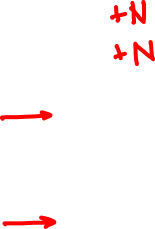 +N
+N